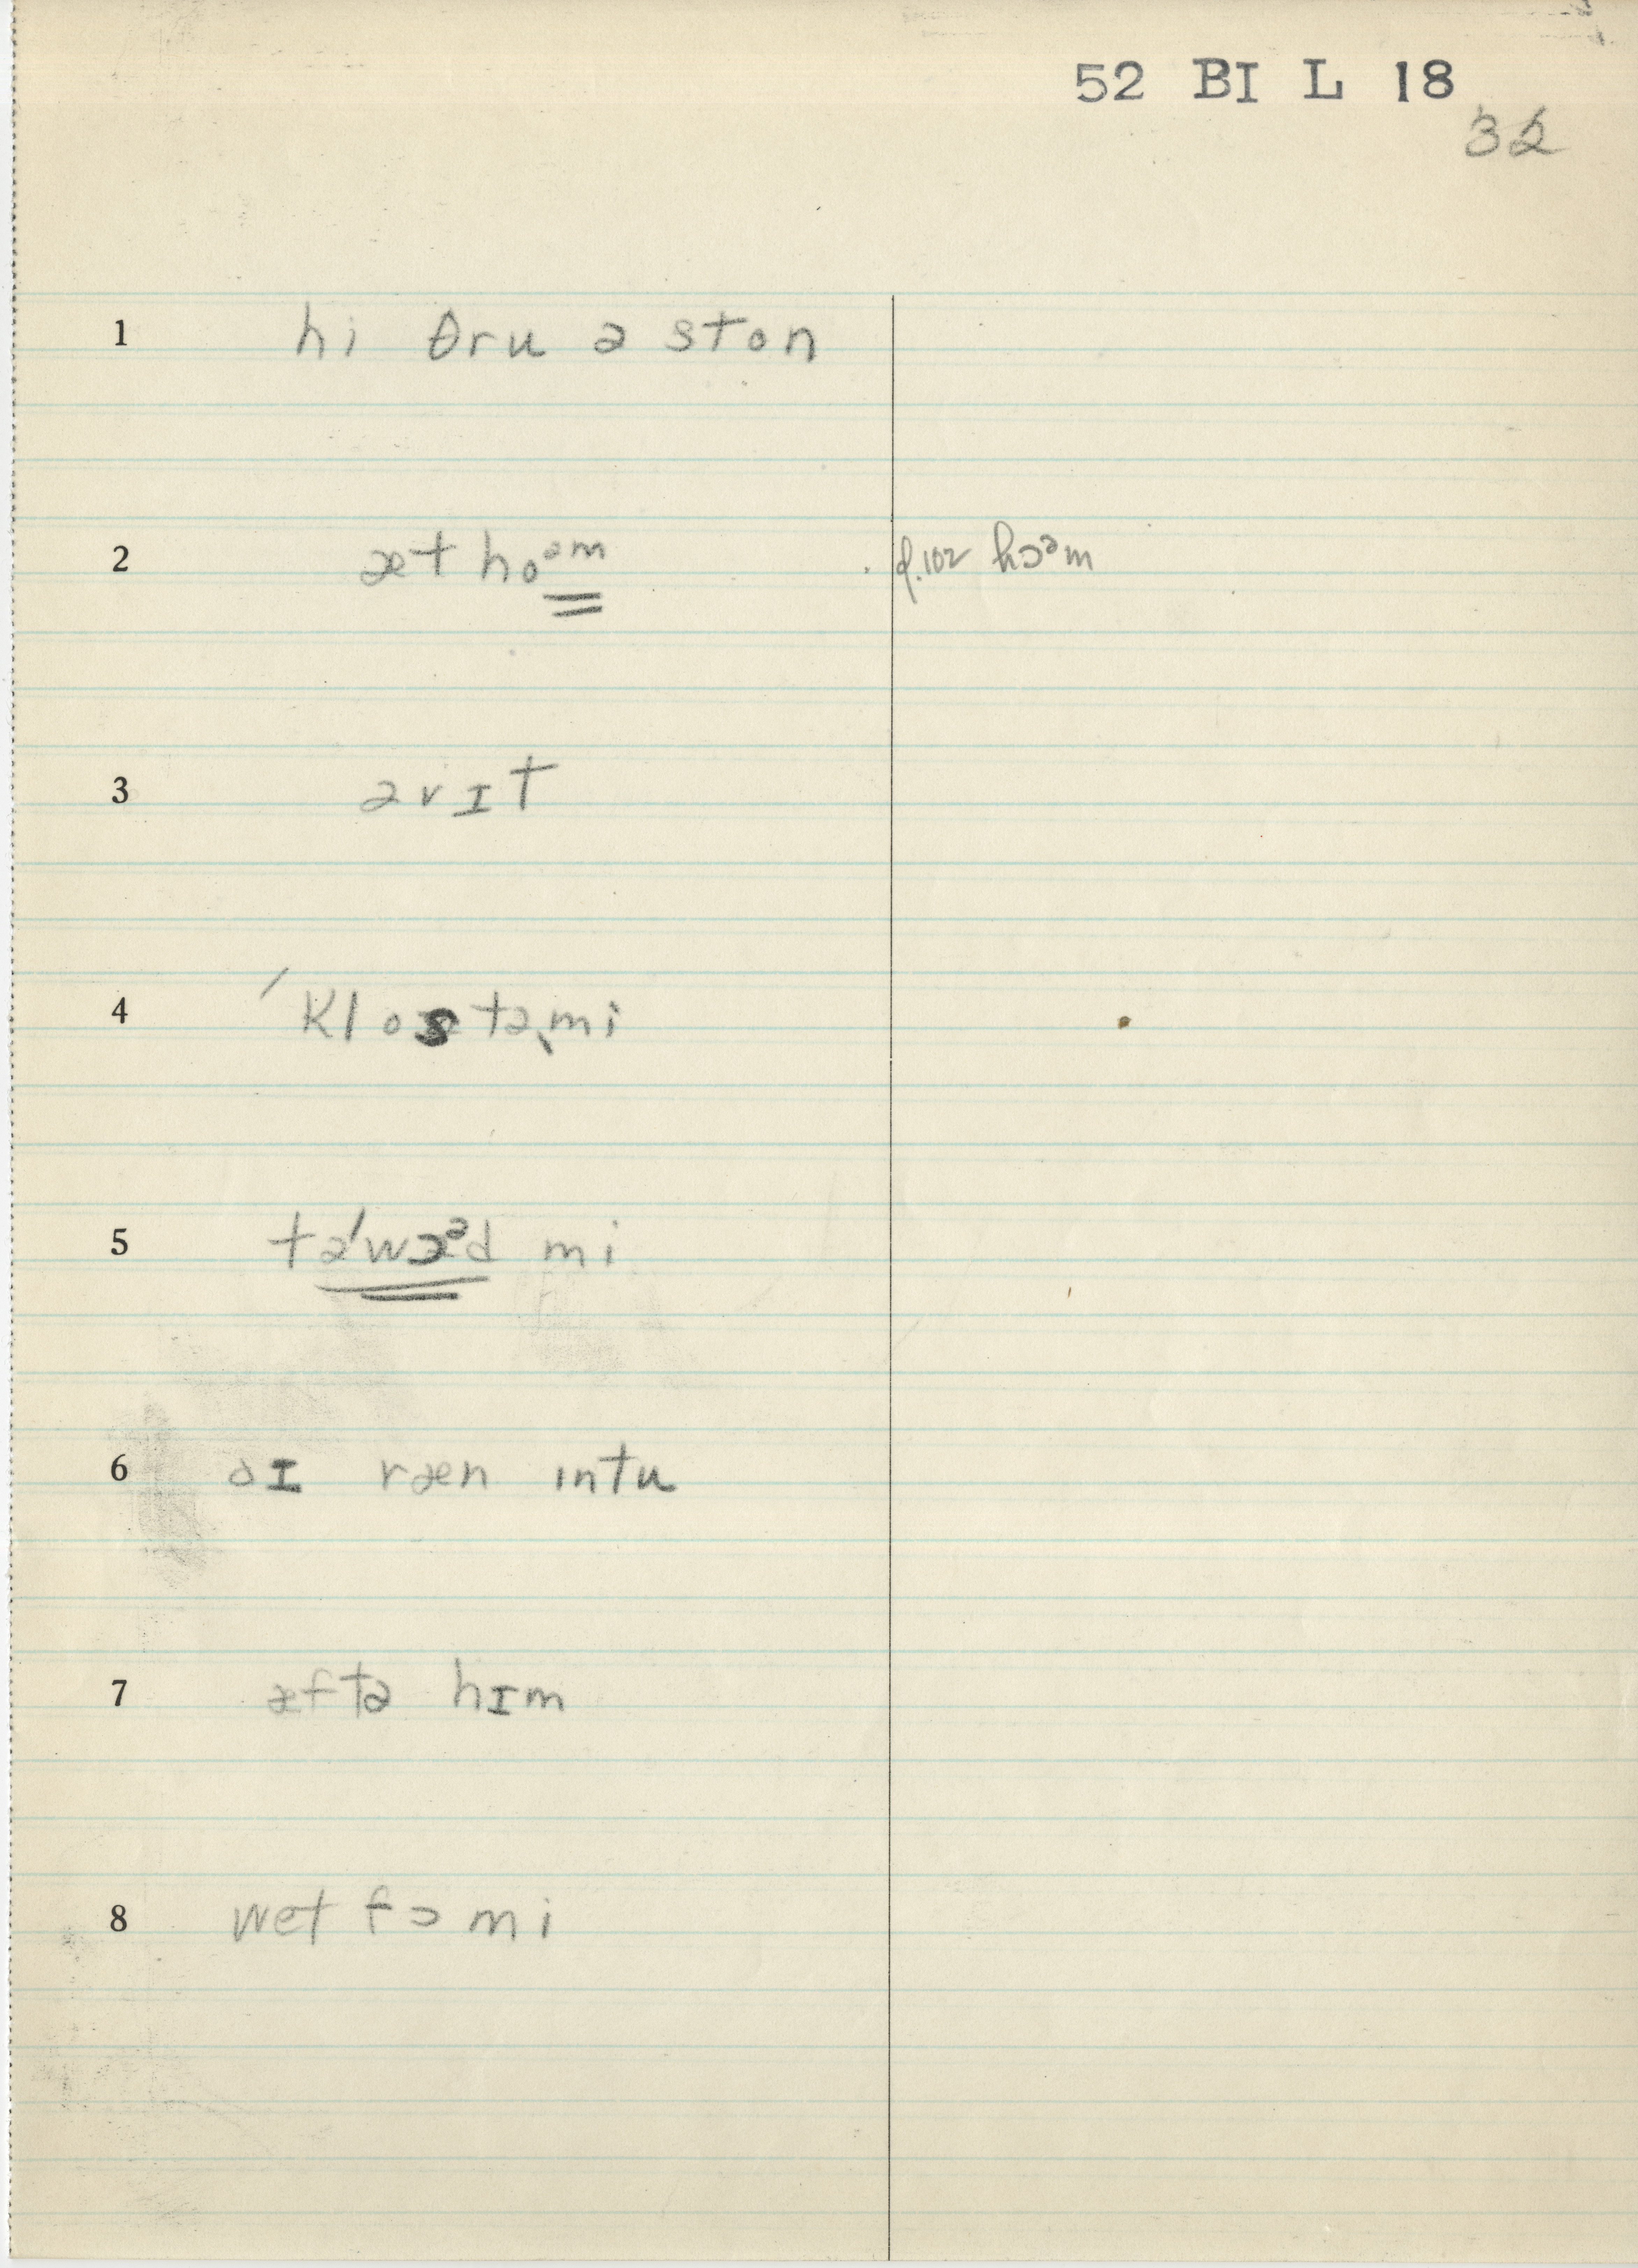 52 BI L 18
32
1 hi θru ə ston
2 æt hoᵊᵐ p.102 hɔᵊm
3 əv ɪt
4 ˈklos tə ˌmi
5 təˈwɔᵊd mi
6 aɪ ræn intu
7 æftə hɪm
8 wet fɔ mi